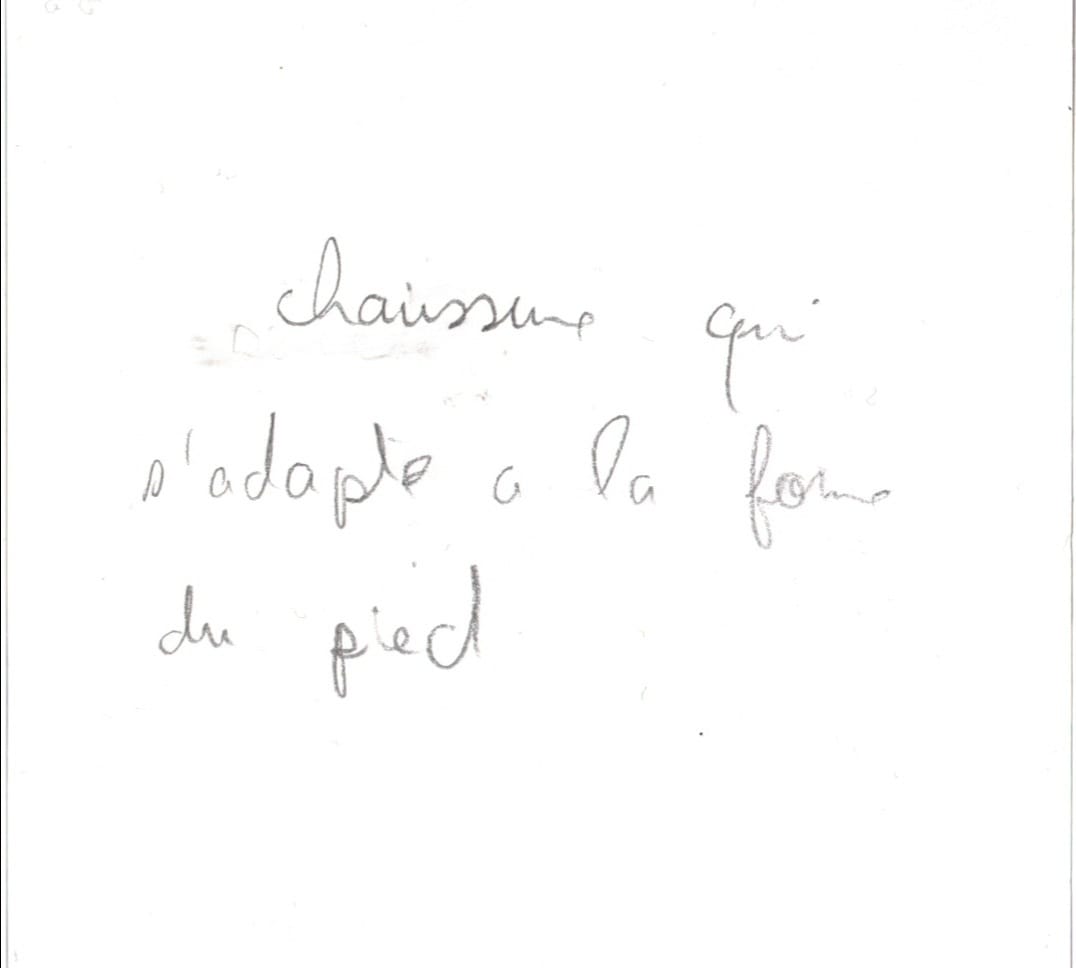 chaussure qui
s'adapte a la forme
du pied